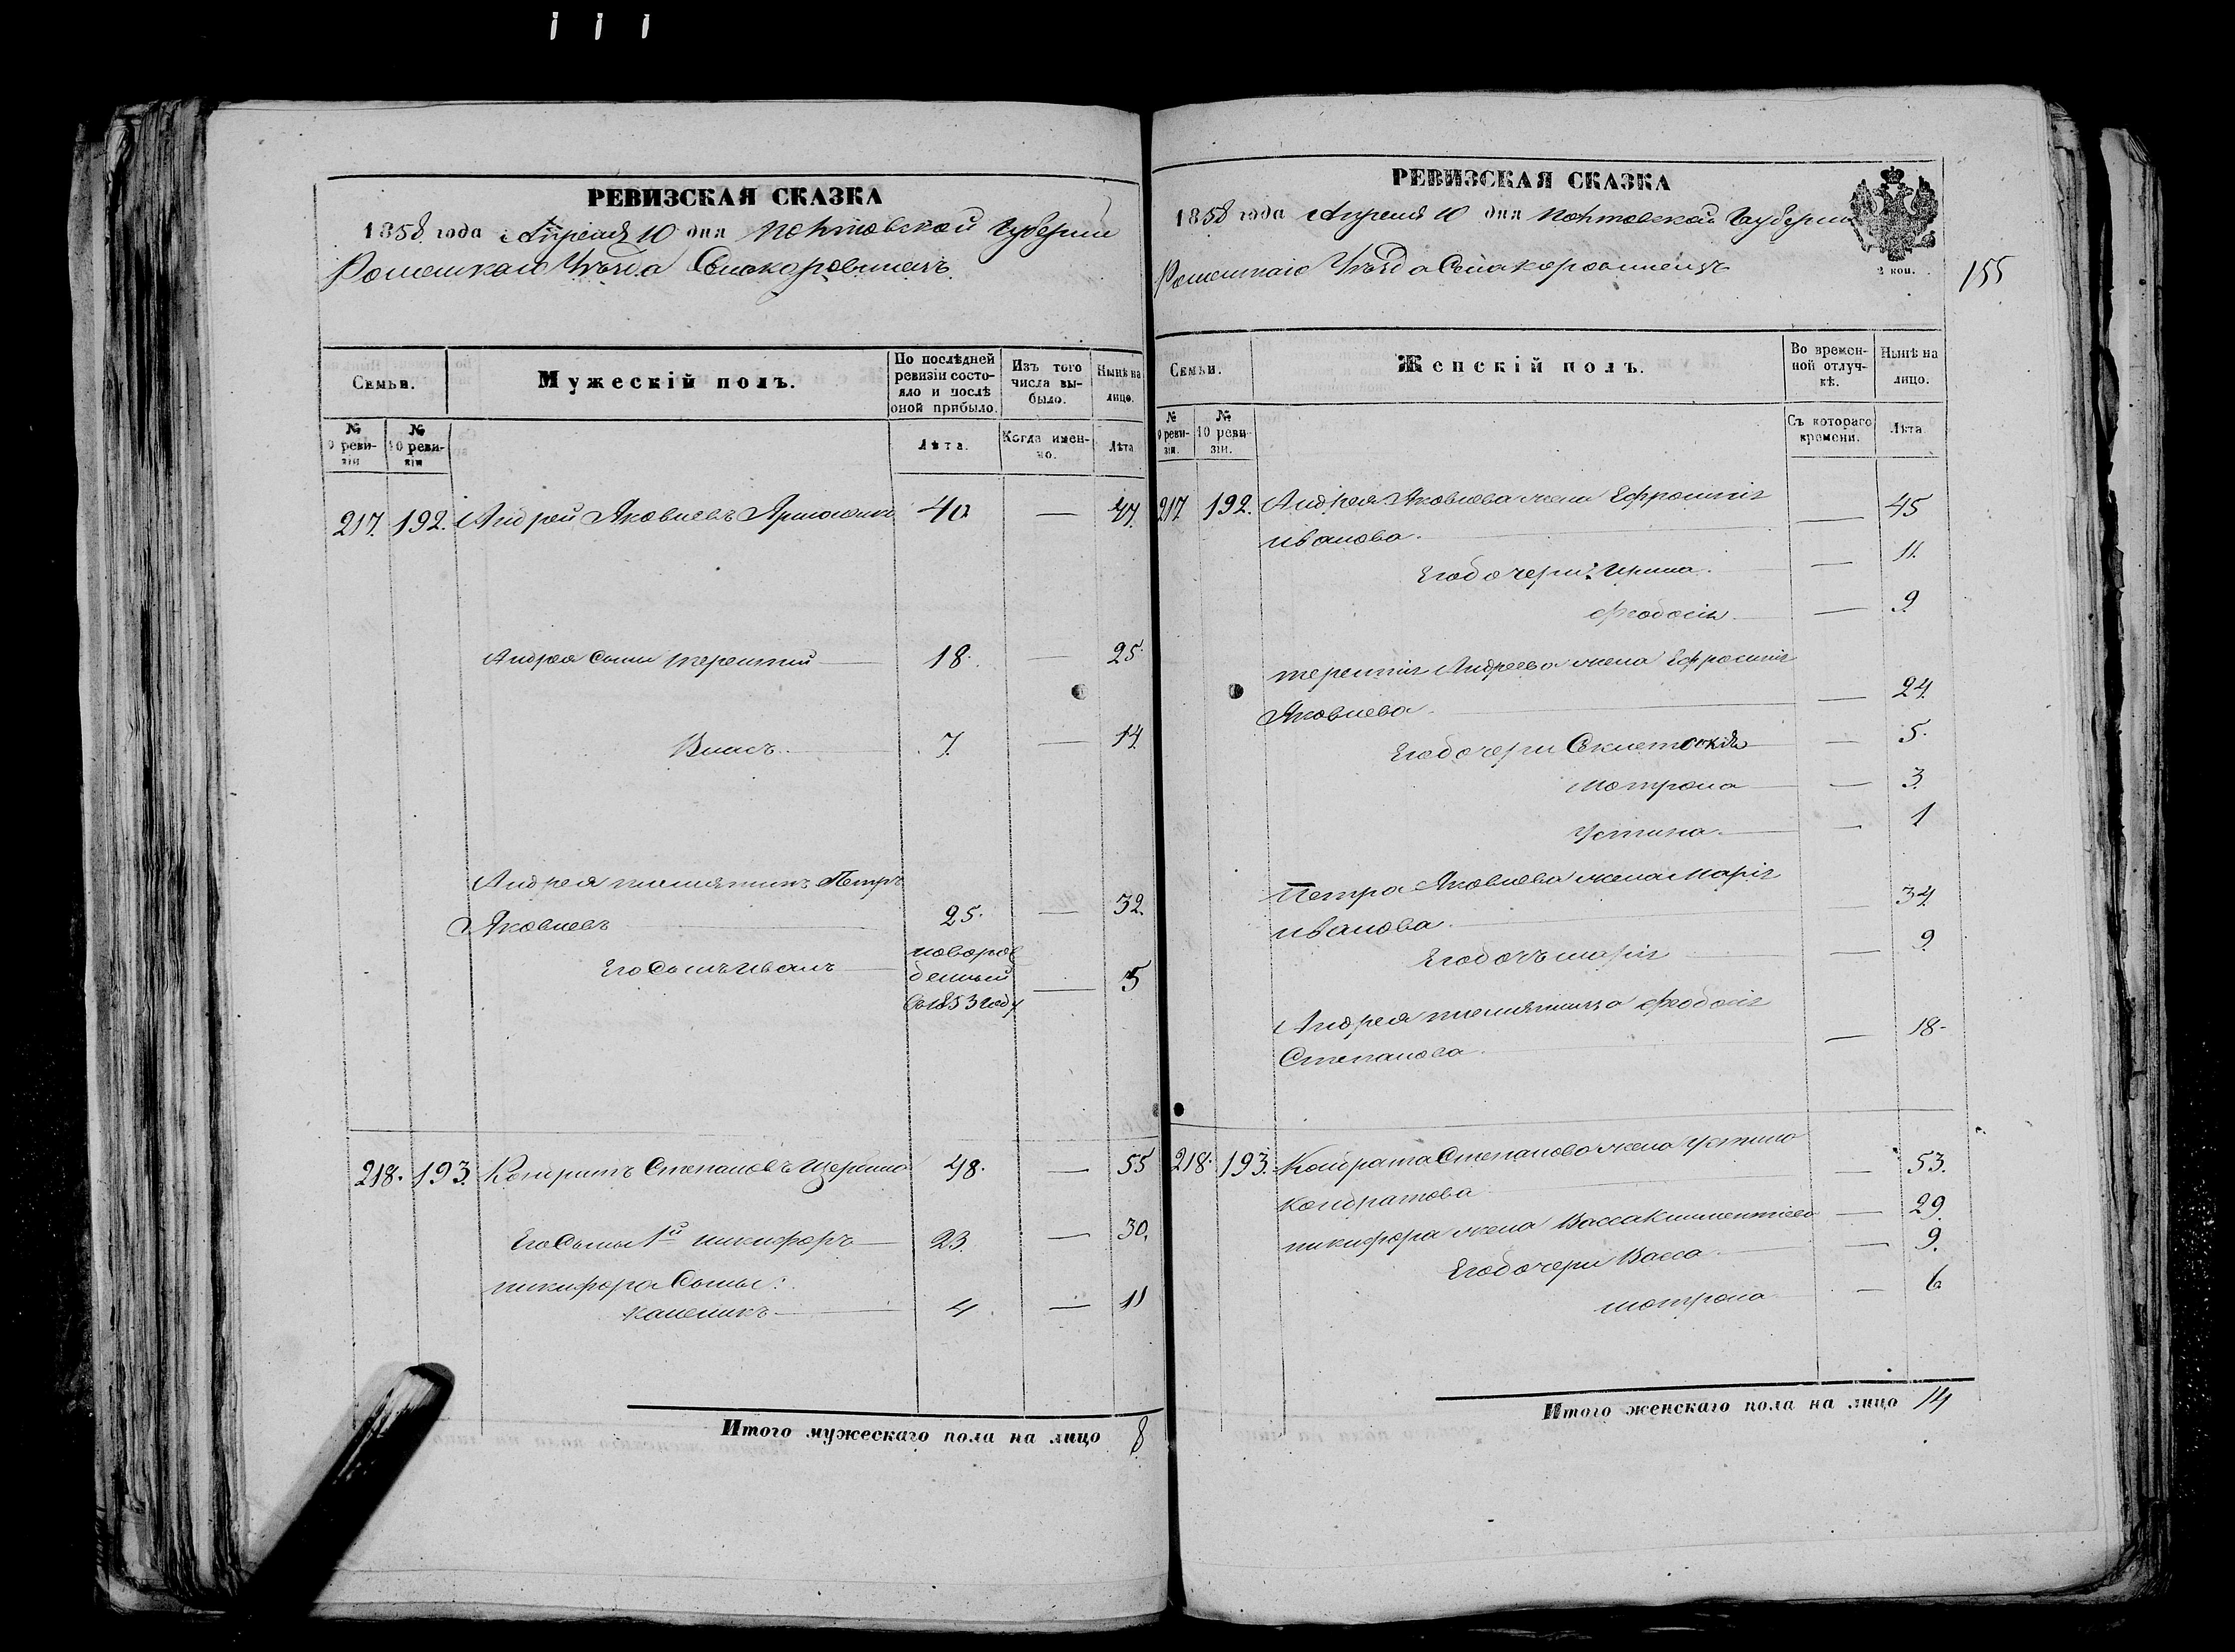 РЕВИЗСКАЯ СКАЗКА
1858 года Апреля 10 дня Полтавской Губернии
Роменскаго Уѣзда
Семьи.
Мужескій полъ.
По послѣдней ревизіи состояло и послѣ оной прибыло.
Изъ того числа выбыло.
Нынѣ на лицо.
№ 9 ревизіи
№ 10 ревизіи
Лѣта.
Когда именно.
Лѣта
217. 192. Андрей Яковлевъ 40 — 47.
Андрея сыны Терентий 18. — 25.
Власъ 7. — 14.
Андрея племянникъ Петръ
Яковлевъ 25. — 32.
Его Сынъ Иванъ
новорож
денный
въ 1853 году — 5
218. 193. Кондратъ Степановъ Щербина 48. — 55
Его Сыны 1й никифоръ 23. — 30.
никифора Сыны:
каленикъ 4. — 11
Итого мужескаго пола на лицо 8
РЕВИЗСКАЯ СКАЗКА
1858 года Апреля 10 дня Полтавской Губернии
Роменскаго Уѣзда
2 коп.
155
Семьи.
Женскій полъ.
Во временной отлучкѣ.
Нынѣ на лицо.
№ 9 ревизіи.
№ 10 ревизіи.
Съ котораго времени.
Лѣта
217. 192. Андрея Яковлева жена Ефросинія
иванова. — 45
Его дочери: Ирина. — 11.
Феодосія — 9
терентія Андреева жена Ефросинія
Яковлева. — 24.
Его дочери — 5.
Мотрона — 3.
Устина. — 1
Петра Яковлева жена Марія
иванова. — 34
Его дочь марія — 9
Андрея племянница Феодосія
Степанова. — 18
218. 193. Кондрата Степанова жена Устина
кондратова — 53.
никифора жена Васса — 29.
Его дочери Васса — 9.
мотрона — 6
Итого женскаго пола на лицо 14